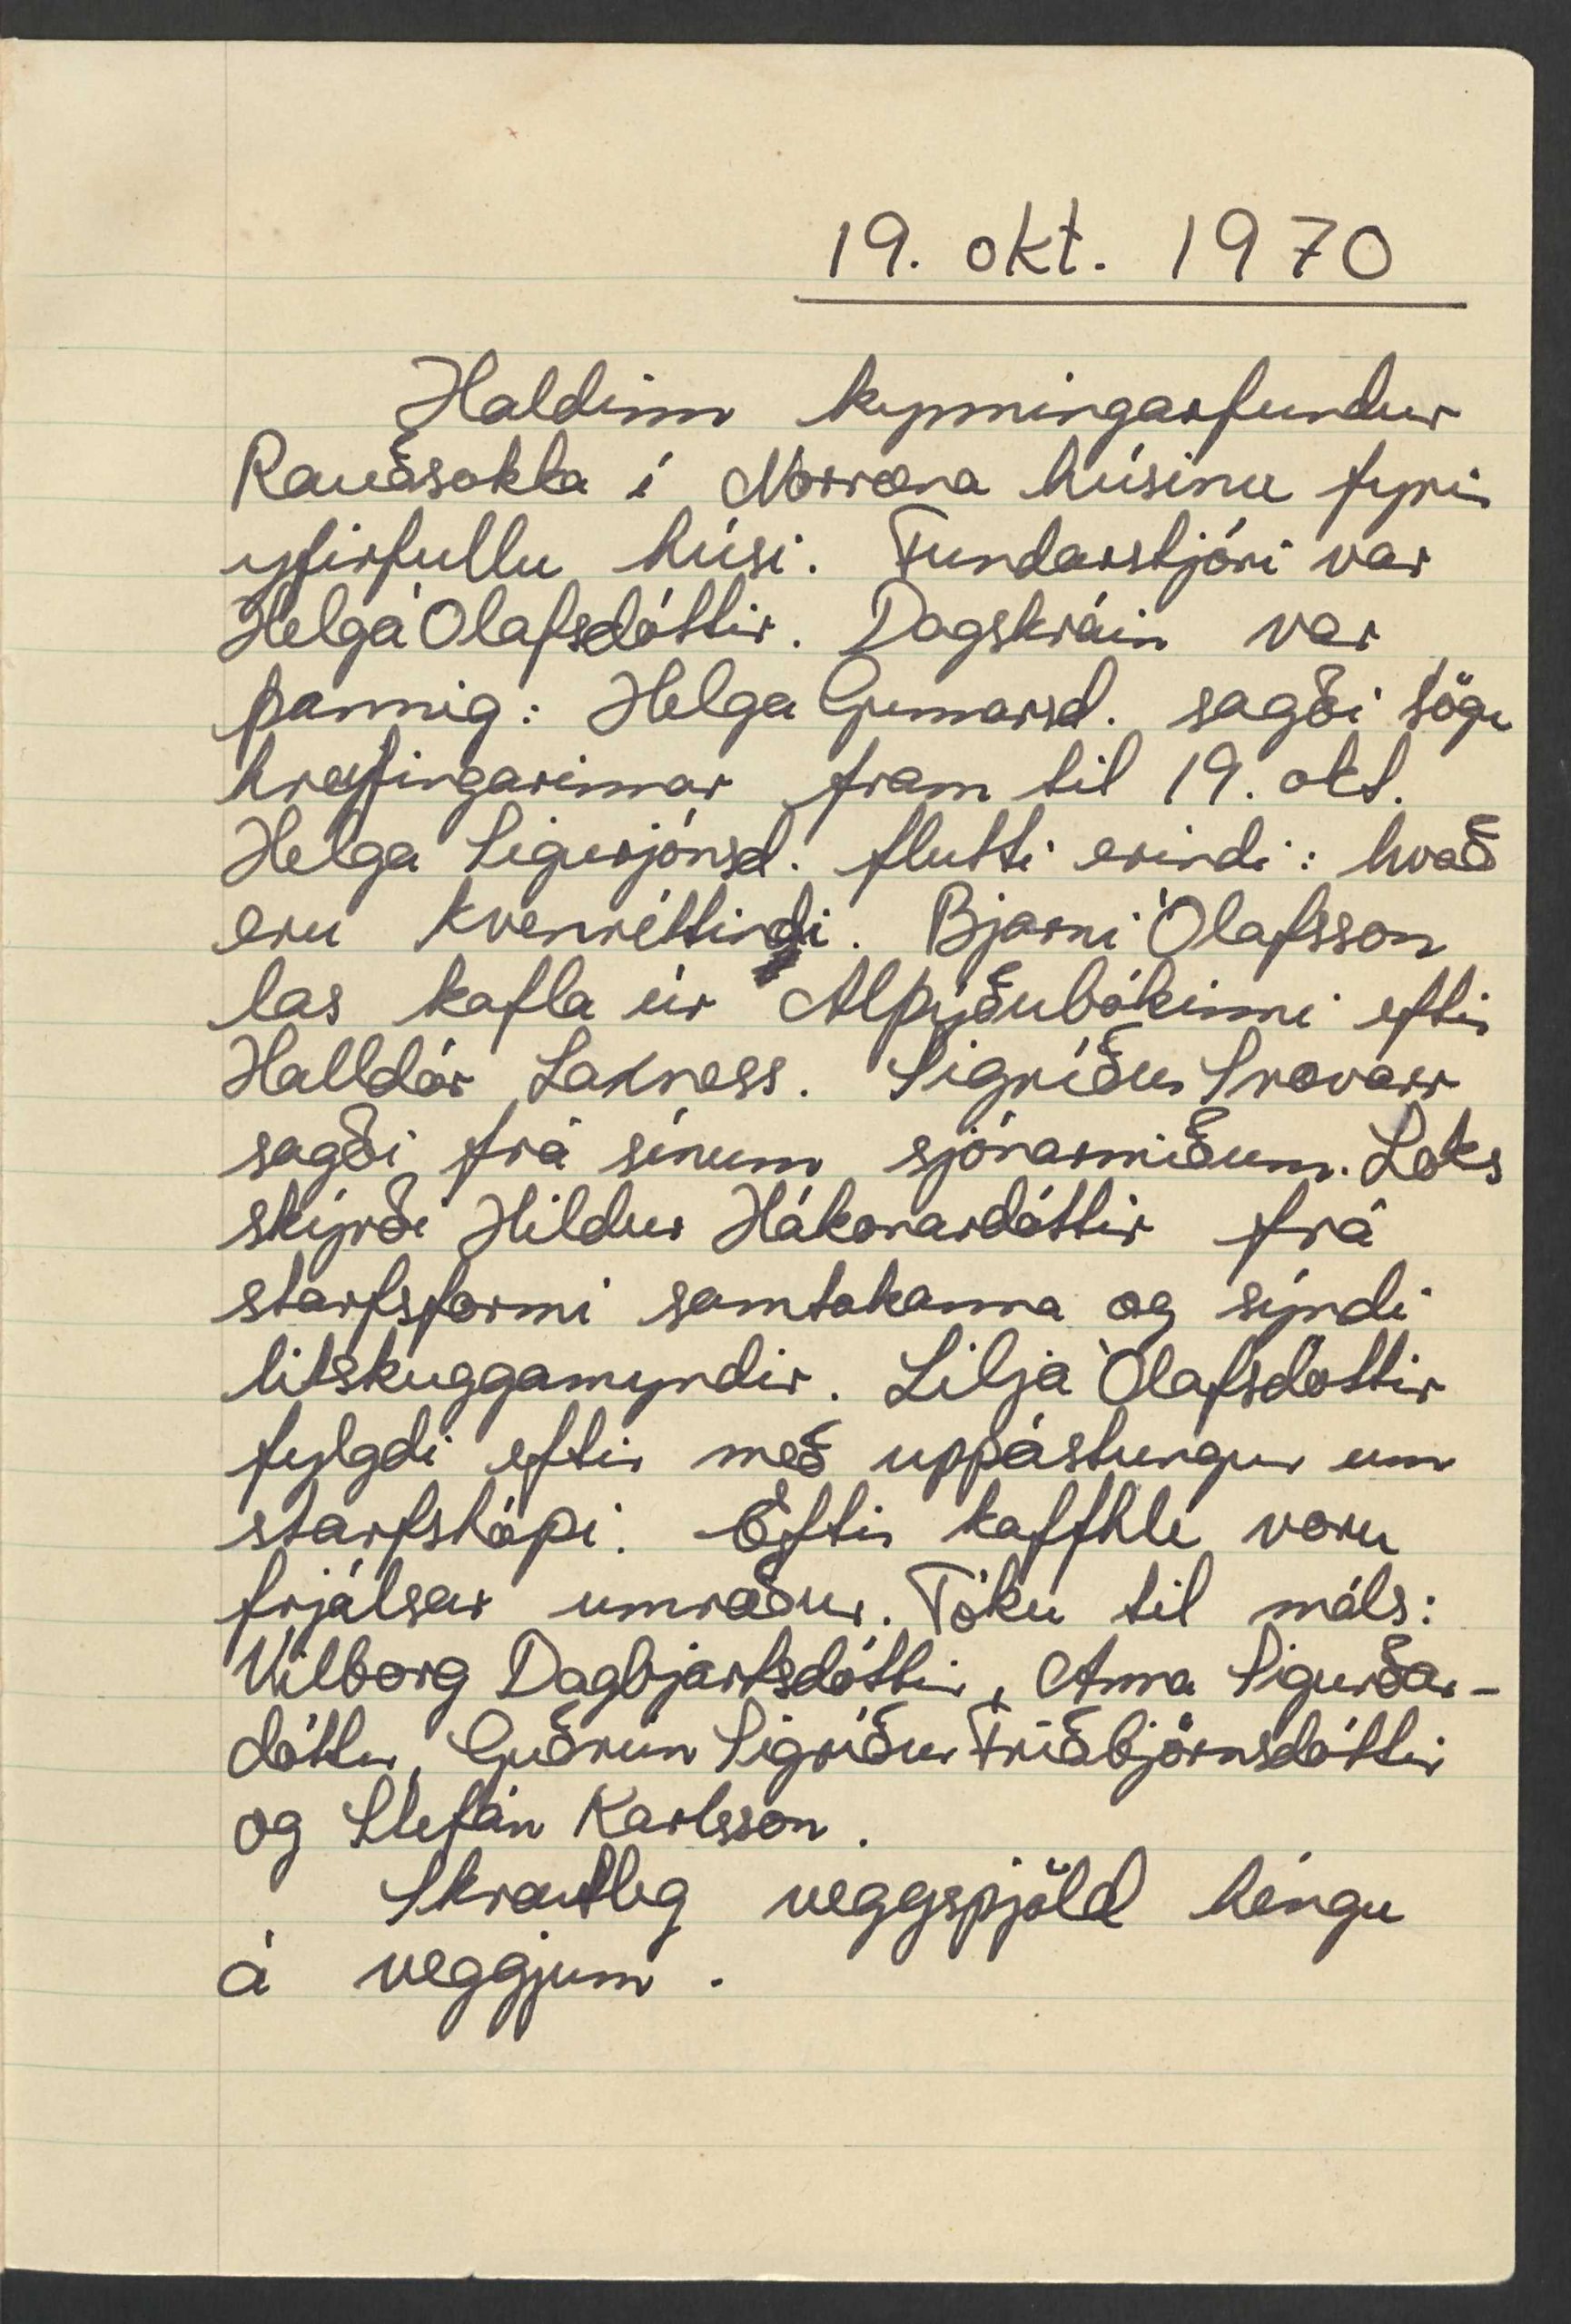 19. okt. 1970
Haldinn kynningarfundur
Rauðsokka í Norræna húsinu fyrir
yfirfullu húsi. Fundarstjóri var
Helga Ólafsdóttir. Dagskráin var
þannig: Helga Gunnarsd. sagði sögu
hreyfingarinnar fram til 19. okt.
Helga Sigurjónsd. flutti erindi: hvað
eru kvenréttindi. Bjarni Ólafsson
las kafla úr Alþýðubókinni eftir
Halldór Laxness. Sigríður Snævarr
sagði frá sínum sjónarmiðum. Loks
skýrði Hildur Hákonardóttir frá
starfsformi samtakanna og sýndi
litskuggamyndir. Lilja Ólafsdóttir
fylgdi eftir með uppástungur um
starfshópi. Eftir kaffihlé voru
frjálsar umræður. Tóku til máls:
Vilborg Dagbjartsdóttir, Anna Sigurðar-
dóttir, Guðrún Sigríður Friðbjörnsdóttir
og Stefán Karlsson.
Skrautleg veggspjöld héngu
á veggjum.